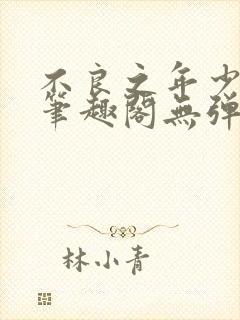 不良之年少
筆趣閣無弹
林小青